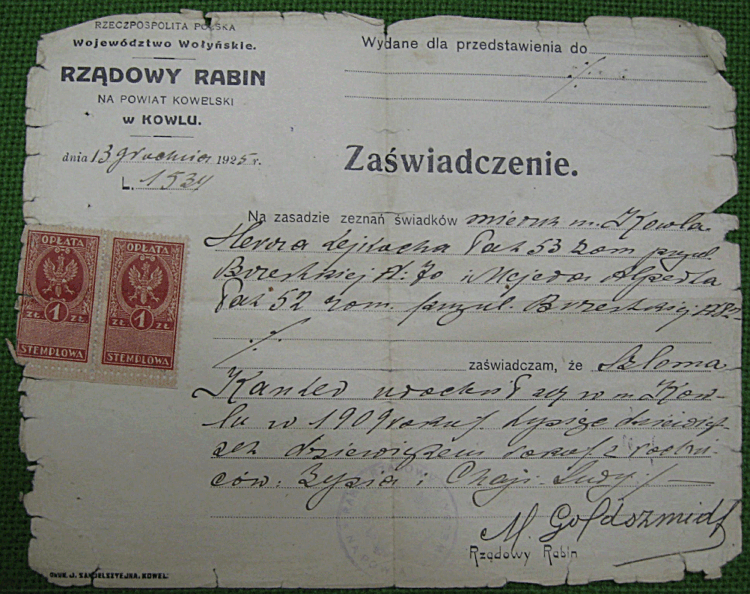 RZECZPOSPOLITA POLSKA
Województwo Wołyńskie.
RZĄDOWY RABIN
NA POWIAT KOWELSKI
w KOWLU.
dnia 13 grudnia 1925 r.
L. 1534
Wydane dla przedstawienia do
Zaświadczenie.
Na zasadzie zeznań świadków mieszk m. Kowla
lat 53 zam przy ul.
Brzeskiej № 70 i
lat 52 zam. przy ul. Brzeskiej
zaświadczam, że Szloma
Kandel urodził się w m. Kow-
lu w 1909 roku / tysiąc dziewięć-
set dziewiątym roku / z rodzi-
ców: Zysia i Chaji Sury /
M. Goldszmidt
Rządowy Rabin
OPŁATA
1
ZŁ ZŁ
STEMPLOWA
OPŁATA
1
ZŁ ZŁ
STEMPLOWA
DRUK. J. SANDELSZTEJNA, KOWEL.